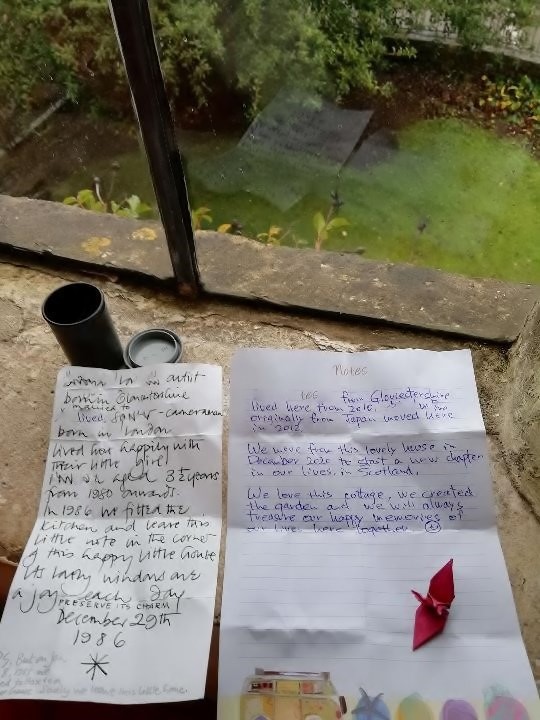 artist
born in Gloucestershire
married to
lived cameraman
born in London
lived here happily with
their little girl
aged 3½ years
from 1980 onwards.
In 1986 we fitted the
kitchen and leave this
little note in the corner
of this happy little house
Its lovely windows are
a joy each day
PRESERVE ITS CHARM
December 29th
1986
Notes
from Gloucestershire
lived here from 2016,
originally from Japan moved here
in
We move from this lovely house in
December 2020 to start a new chapter
in our lives, in Scotland.
We love this cottage, we created
the garden and we will always
treasure our happy memories of
our lives here together